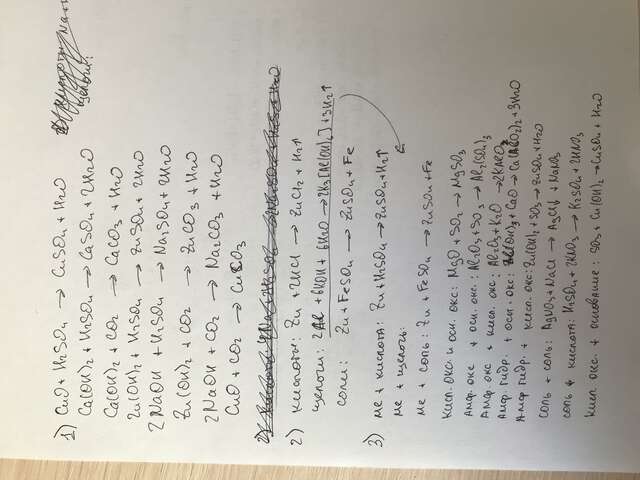 1) CuO + H2SO4 → CuSO4 + H2O
Ca(OH)2 + H2SO4 → CaSO4 + 2H2O
Ca(OH)2 + CO2 → CaCO3 + H2O
Zn(OH)2 + H2SO4 → ZnSO4 + 2H2O
2NaOH + H2SO4 → Na2SO4 + 2H2O
Zn(OH)2 + CO2 → ZnCO3 + H2O
2NaOH + CO2 → Na2CO3 + H2O
CuO + CO2 → CuCO3
2) кислоты: Zn + 2HCl → ZnCl2 + H2↑
щелочи: 2Al + 6KOH + 6H2O → 2K3[Al(OH)6] + 3H2↑
солеи: Zn + FeSO4 → ZnSO4 + Fe
3) ме + кислота: Zn + H2SO4 → ZnSO4 + H2↑
ме + щелочь:
ме + соль: Zn + FeSO4 → ZnSO4 + Fe
Кисл. окс и осн. окс: MgO + SO2 → MgSO3
Амф. окс + осн. окс: Al2O3 + SO3 → Al2(SO4)3
Амф. окс + кисл. окс: Al2O3 + K2O → 2KAlO2
Амф. гидр. + осн. окс: + CaO → Ca(AlO2)2 + 3H2O
Амф. гидр. + кисл. окс: Zn(OH)2 + SO3 → ZnSO4 + H2O
соль + соль: AgNO3 + NaCl → AgCl↓ + NaNO3
соль + кислота: H2SO4 + 2KNO3 → K2SO4 + 2HNO3
Кисл. окс. + основание: SO3 + Cu(OH)2 → CuSO4 + H2O